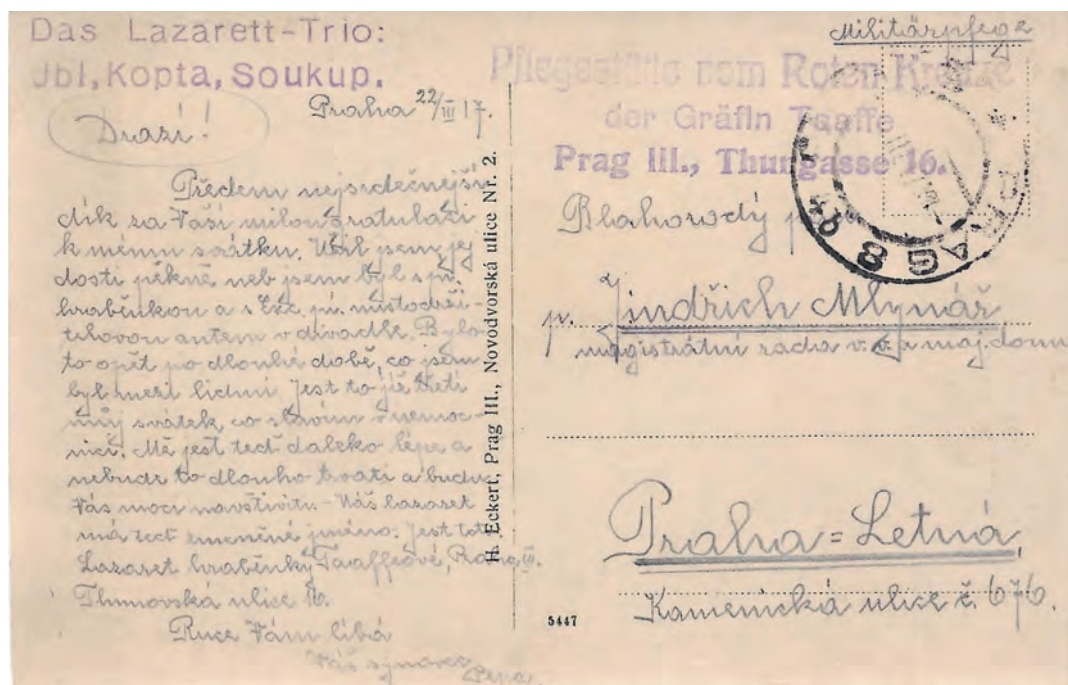 Das Lazarett-Trio:
Jbl, Kopta, Soukup.
Praha 22/III 17.
Drazí!
Předem nejsrdečnější
dík za Vaši milou gratulaci
k mému svátku. Užil jsem jej
dosti pěkně neb jsem byl s pí.
hraběnkou a s Exc. pí. místodrži-
telovou autem v divadle. Bylo
to opět po dlouhé době, co jsem
byl mezi lidmi. Jest to již třetí
můj svátek, co slavím v nemoc-
nici. Mě jest teď daleko lépe a
nebude to dlouho trvati a budu
Vás moci navštíviti. - Náš lazaret
má teď změněné jméno: Jest toto
Lazaret hraběnky Taaffeové, Praha III.
Thunovská ulice 16.
Ruce Vám líbá
Váš synovec
Pepa.
H. Eckert, Prag III., Novodvorská ulice Nr. 2.
5447
Militärpflege
Pflegestätte vom Roten Kreuze
der Gräfin Taaffe
Prag III., Thungasse 16.
PRAG 8
Blahorodý p
p. Jindřich Mlynář
magistrátní rada v. v. a maj. domu
Praha=Letná,
Kamenická ulice č. 676.